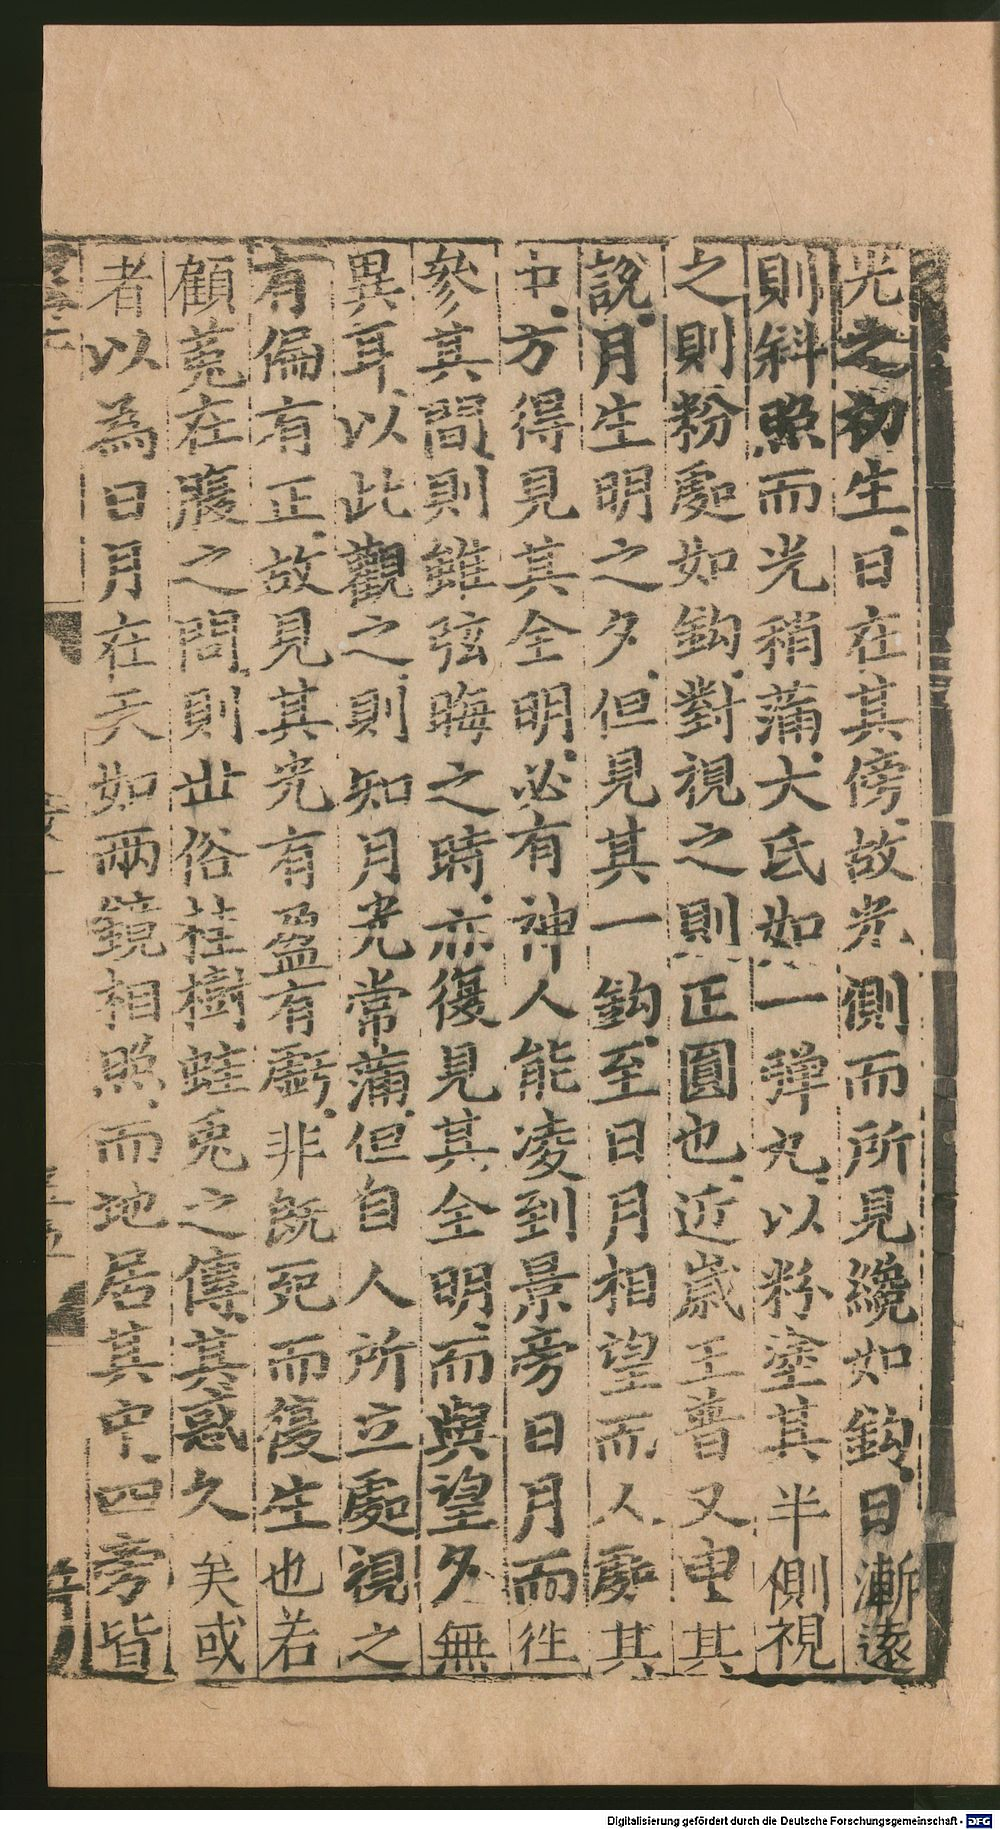 光之初生日在其傍故光側而所見纔如鉤日漸遠
則斜照而光稍滿大氐如一彈丸以粉塗其半側視
之則粉處如鉤對視之則正圓也近歲王普又申其
說月生明之夕但見其一鉤至日月相望而人處其
中方得見其全明必有神人能凌到景旁日月而徃
參其間則雖弦晦之時亦復見其全明而與望夕無
異耳以此觀之則知月光常滿但自人所立處視之
有偏有正故見其光有盈有虧非既死而復生也若
顧菟在腹之問則丗俗桂樹蛙兎之傳其惑久矣或
者以為日月在天如兩鏡相照而地居其中四旁皆
Digitalisierung gefördert durch die Deutsche Forschungsgemeinschaft - DFG